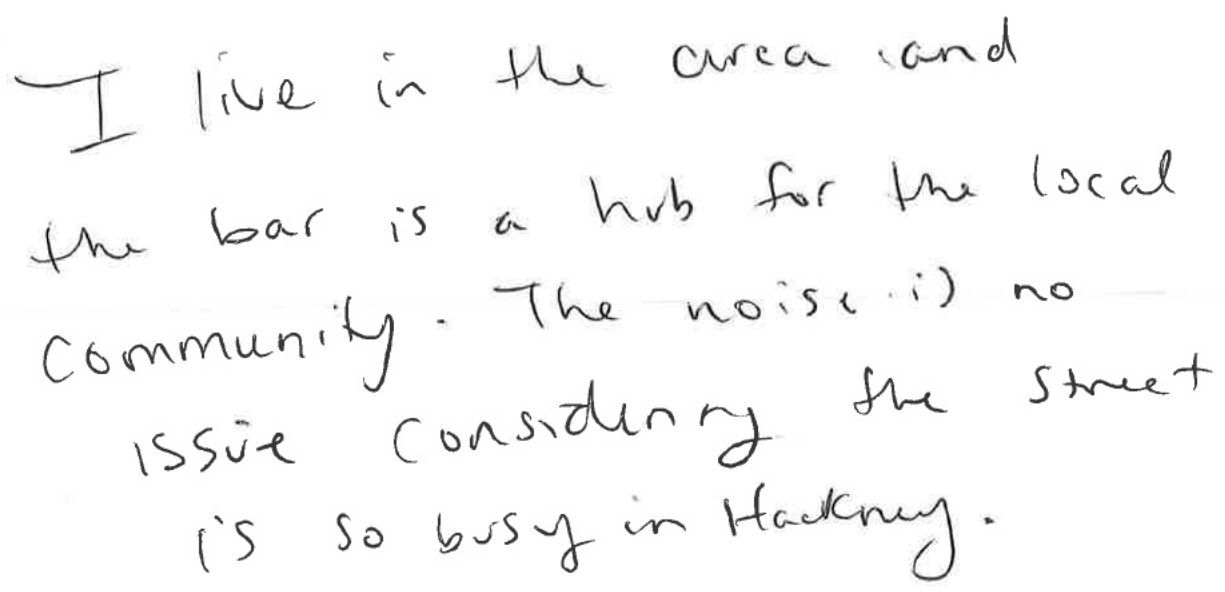 I live in the area and
the bar is a hub for the local
community. The noise is no
issue considering the street
is so busy in Hackney.